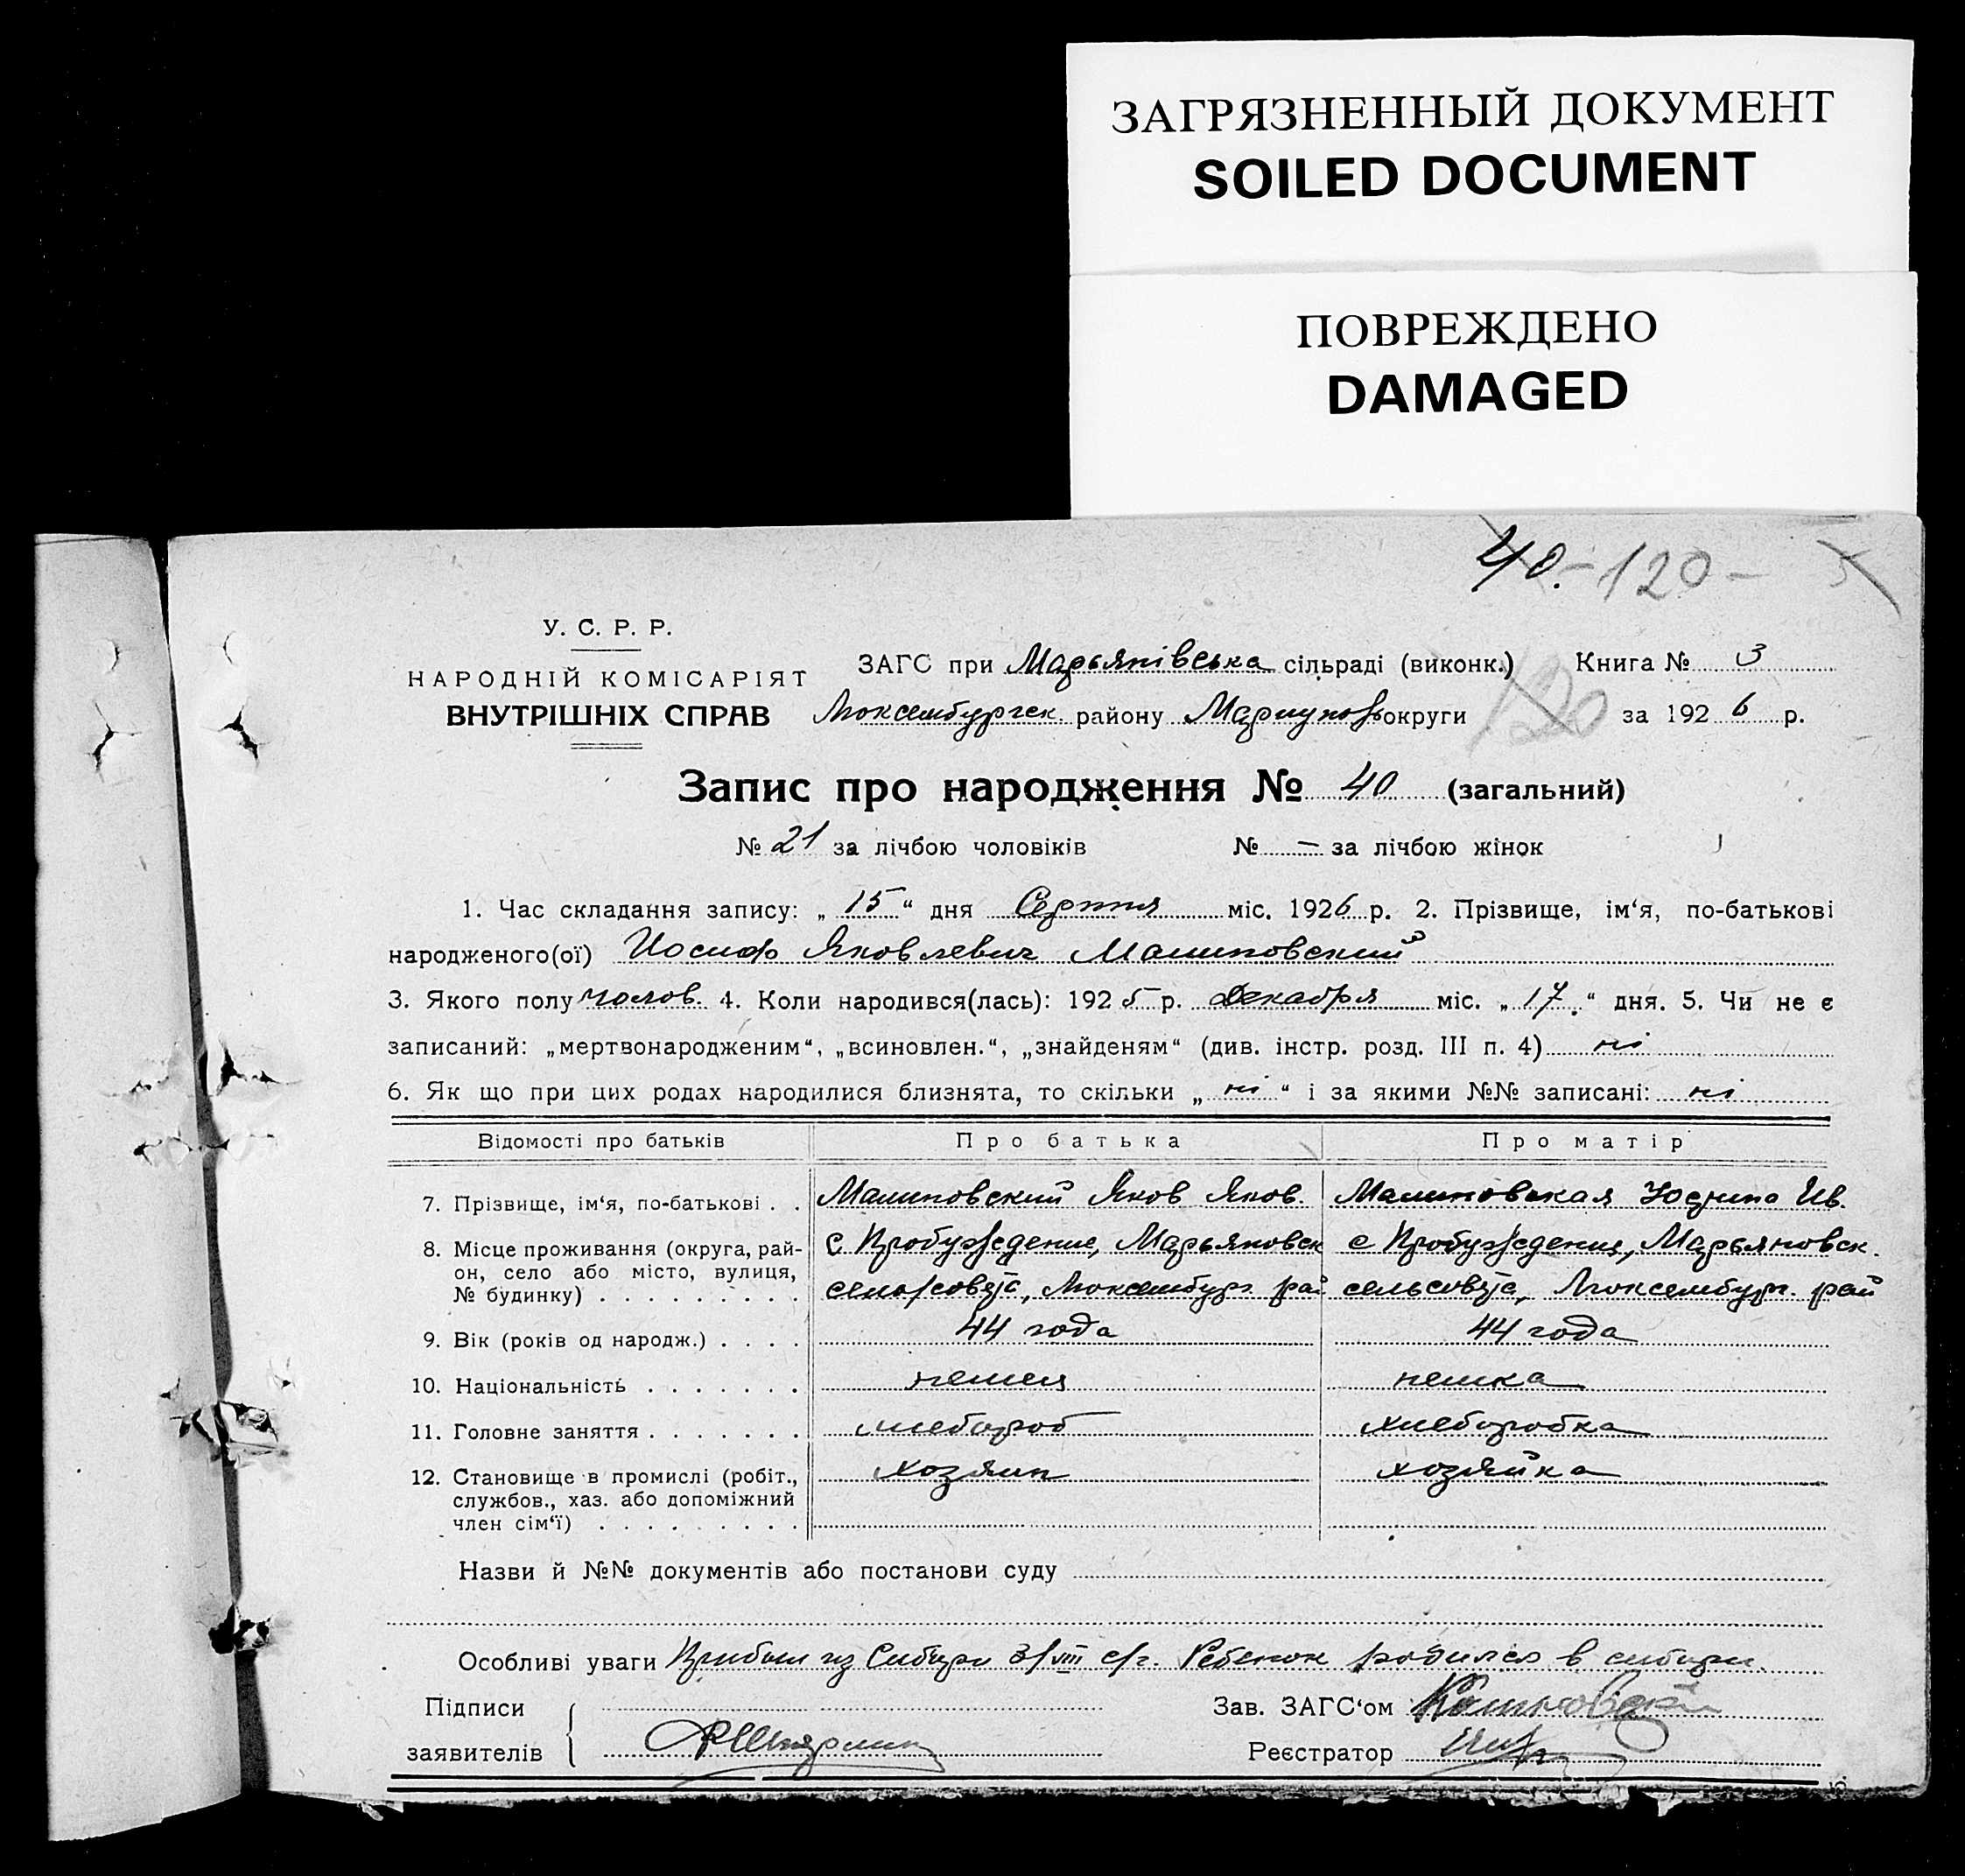 ЗАГРЯЗНЕННЫЙ ДОКУМЕНТ
SOILED DOCUMENT
ПОВРЕЖДЕНО
DAMAGED
40.-120-
У. С. Р. Р.
НАРОДНІЙ КОМІСАРІЯТ
ВНУТРІШНІХ СПРАВ
ЗАГС при Марьянівська сільраді (виконк.) Книга № 3
Люксембургск. району Мариупольокруги 120 за 1926 р.
Запис про народження № 40 (загальний)
№ 21 за лічбою чоловіків № — за лічбою жінок
1. Час складання запису: „ 15 “ дня Серпня міс. 1926 р. 2. Прізвище, ім‘я, по-батькові
народженого(ої) Иосиф Яковлевич Малиновский
3. Якого полу чолов. 4. Коли народився(лась): 1925 р. Декабря міс. „ 17 “ дня. 5. Чи не є
записаний: „мертвонародженим“, „всиновлен.“, „знайденям“ (див. інстр. розд. III п. 4) ні
6. Як що при цих родах народилися близнята, то скільки „ ні “ і за якими №№ записані: ні
Відомості про батьків Про батька Про матір
7. Прізвище, ім‘я, по-батькові . . Малиновский Яков Яков. Малиновская Ив.
8. Місце проживання (округа, рай- с Пробуждение, Марьяновск с Пробуждения, Марьяновск.
он, село або місто, вулиця,
№ будинку) . . . . . . . . . сельсовета, Люксембург. рай сельсовета, Люксембург. рай
9. Вік (років од народж.) . . . . 44 года 44 года
10. Національність . . . . . . . немец немка
11. Головне заняття . . . . . . . хлебороб хлеборобка
12. Становище в промислі (робіт., хозяин хозяйка
службов., хаз. або допоміжний
член сім‘ї) . . . . . . . . .
Назви й №№ документів або постанови суду
Особливі уваги Прибыл из Сибири 3/VIII с/г. Ребенок родился в сибири.
Підписи Зав. ЗАГС‘ом
заявителів Реєстратор